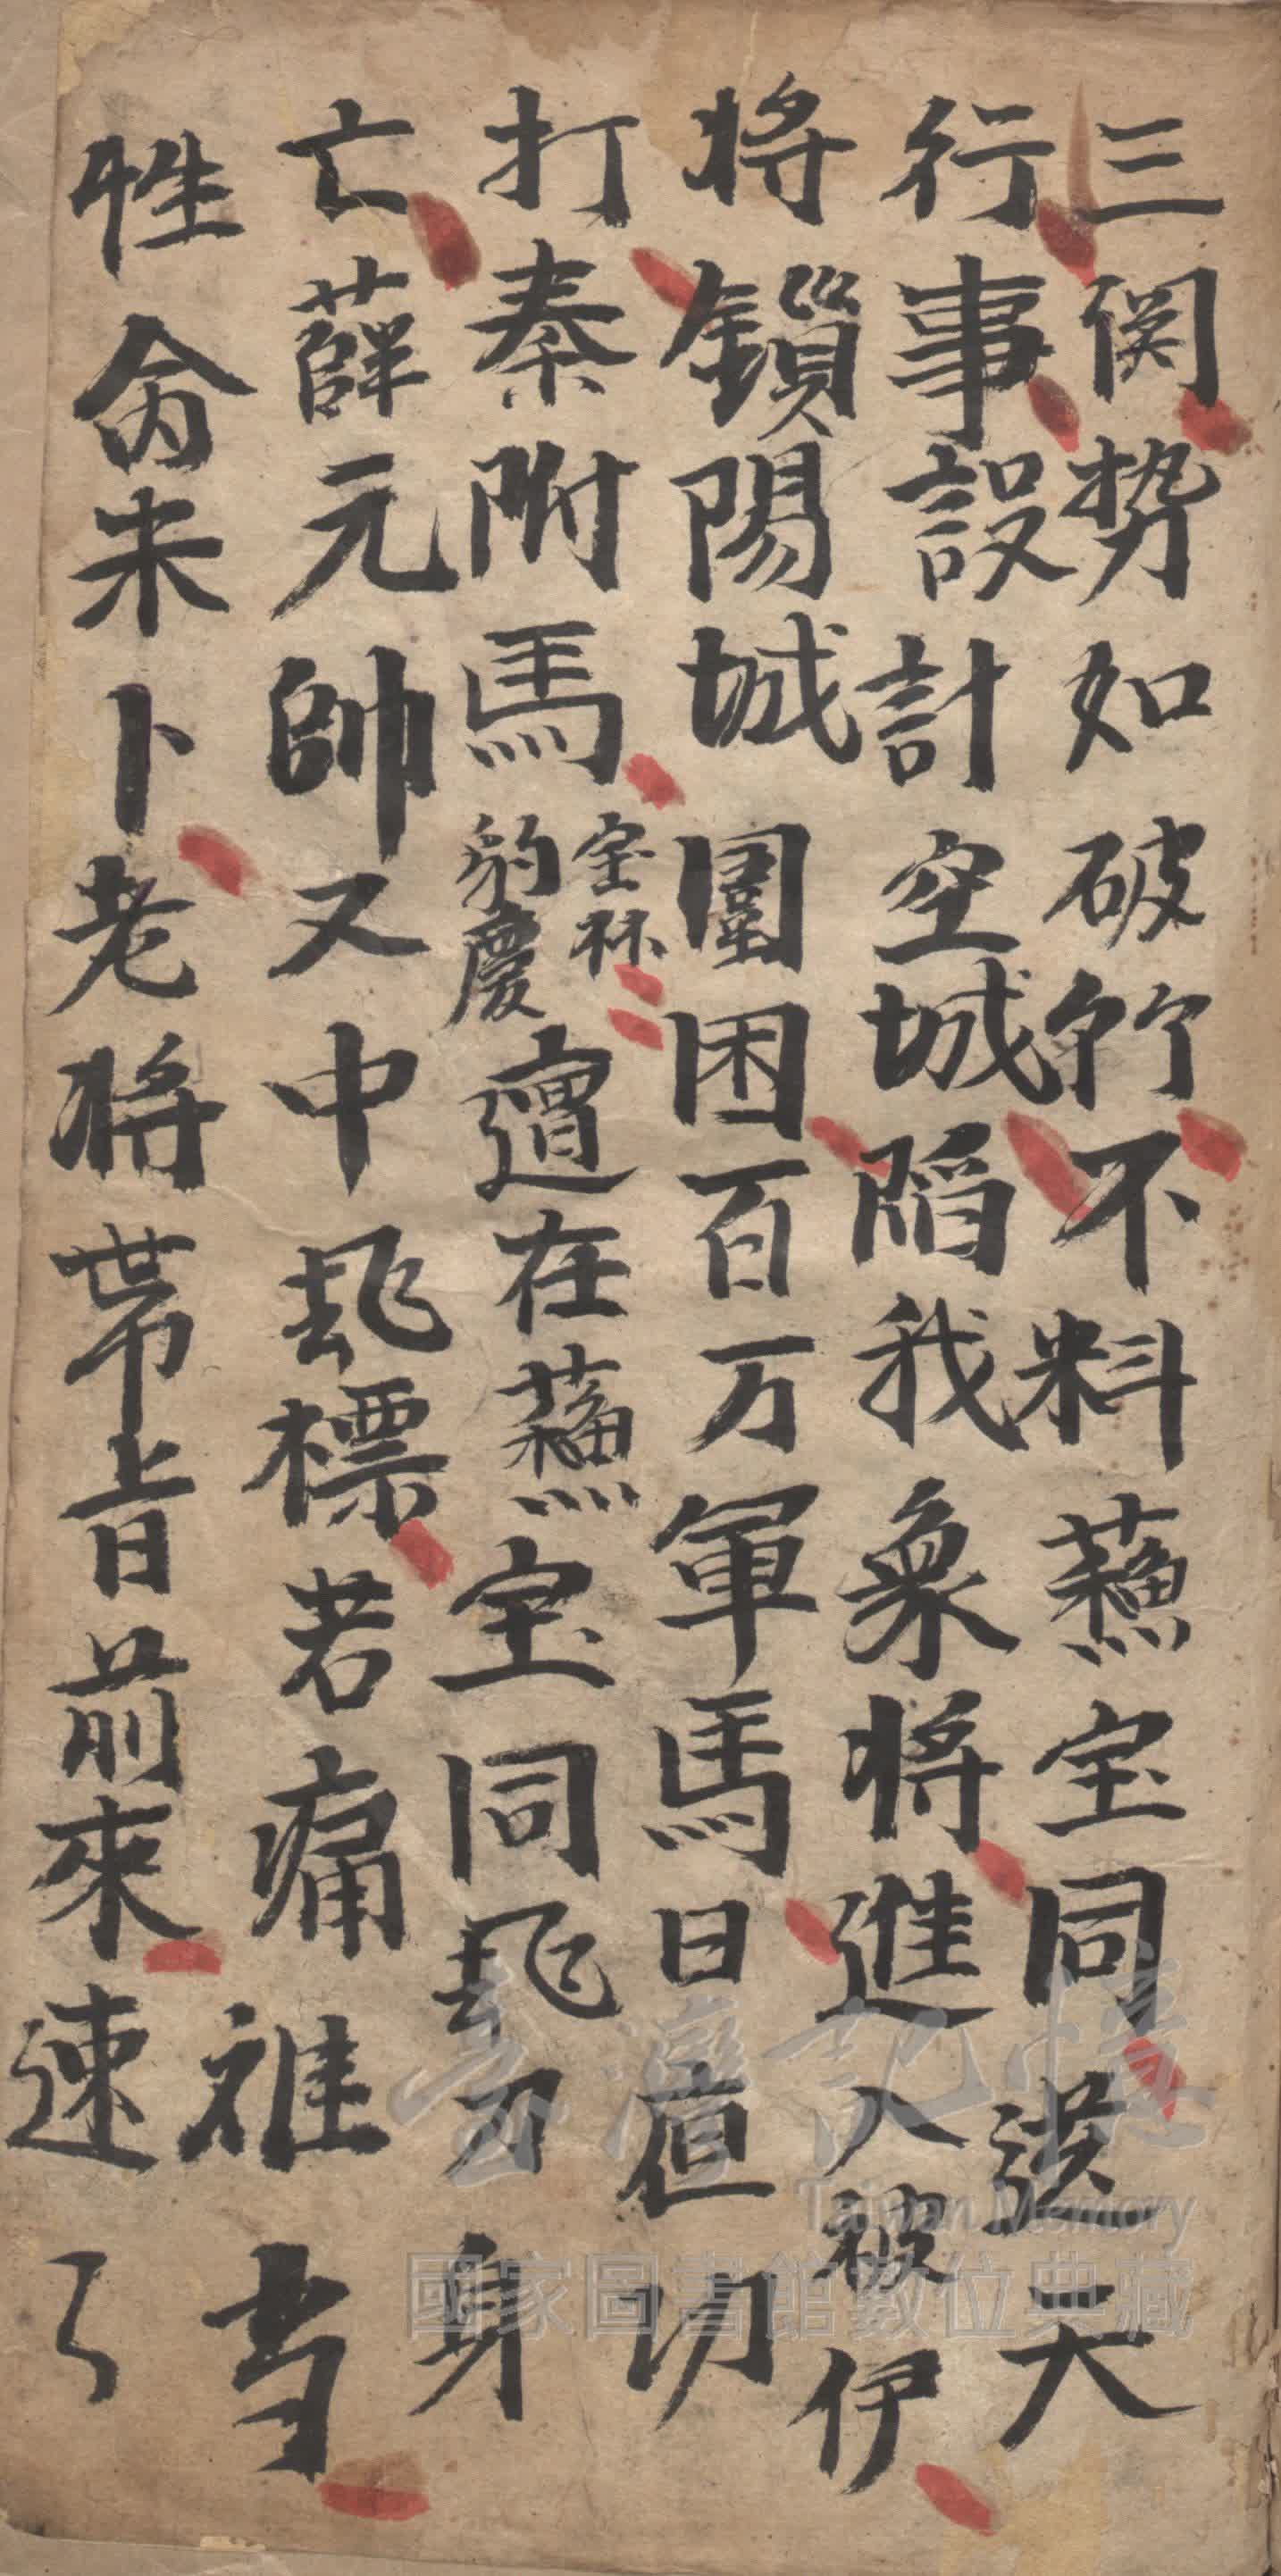 三関势如破竹不料蘓宝同送大
行事設計空城陷我衆将進入被伊
将鎖陽城圍困百万軍馬日值切
打秦附馬宝林豹慶遭在蘓宝同飛刀身
亡薛元帥又中飛標若痛难当
性命未卜老将带旨前來速了
臺灣記憶
Taiwan Memory
國家圖書館數位典藏